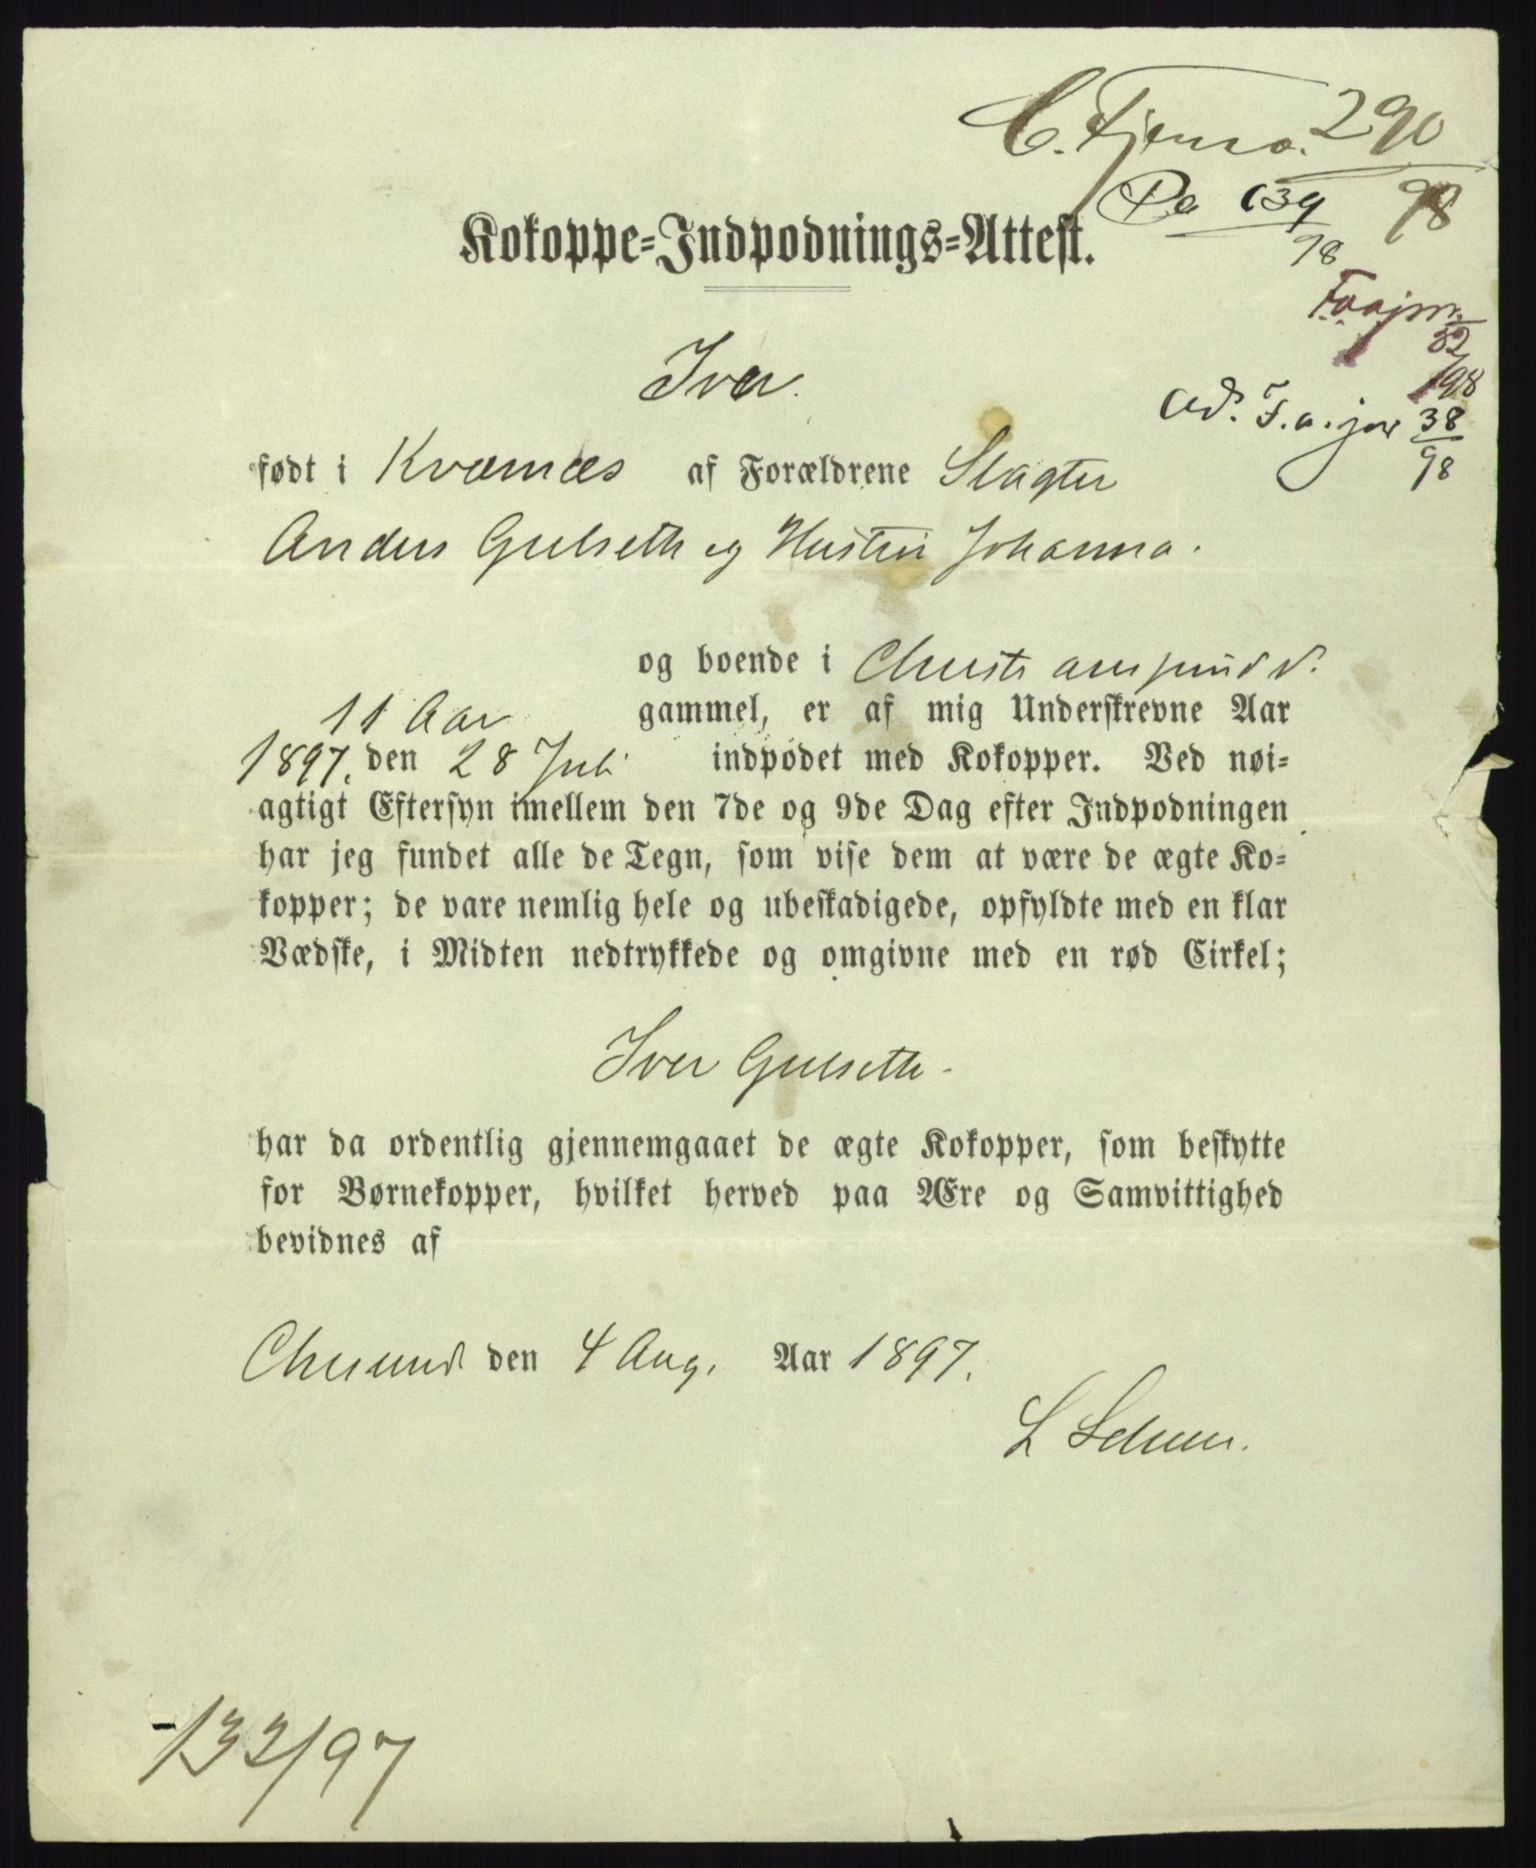 C. Tjensv. 290
98
Pa 139
98
Kokoppe-Indpodnings-Attest.
F.a.jnr.
32
98
Iver.
ad. F.a.jnr 38
98
født i Kværnæs af Forældrene Slagter
Anders Gulseth og Hustru Johanna.
og boende i Christiansund N.
11 Aar gammel, er af mig Underskrevne Aar
1897. den 28 Juli indpodet med Kokopper. Ved nøi-
agtigt Eftersyn imellem den 7de og 9de Dag efter Indpodningen
har jeg fundet alle de Tegn, som vise dem at være de ægte Ko-
kopper; de vare nemlig hele og ubeskadigede, opfyldte med en klar
Vædske, i Midten nedtrykkede og omgivne med en rød Cirkel;
Iver Gulseth.
har da ordentlig gjennemgaaet de ægte Kokopper, som beskytte
for Børnekopper, hvilket herved paa Ære og Samvittighed
bevidnes af
Chrsund den 4 Aug. Aar 1897.
L
132/97